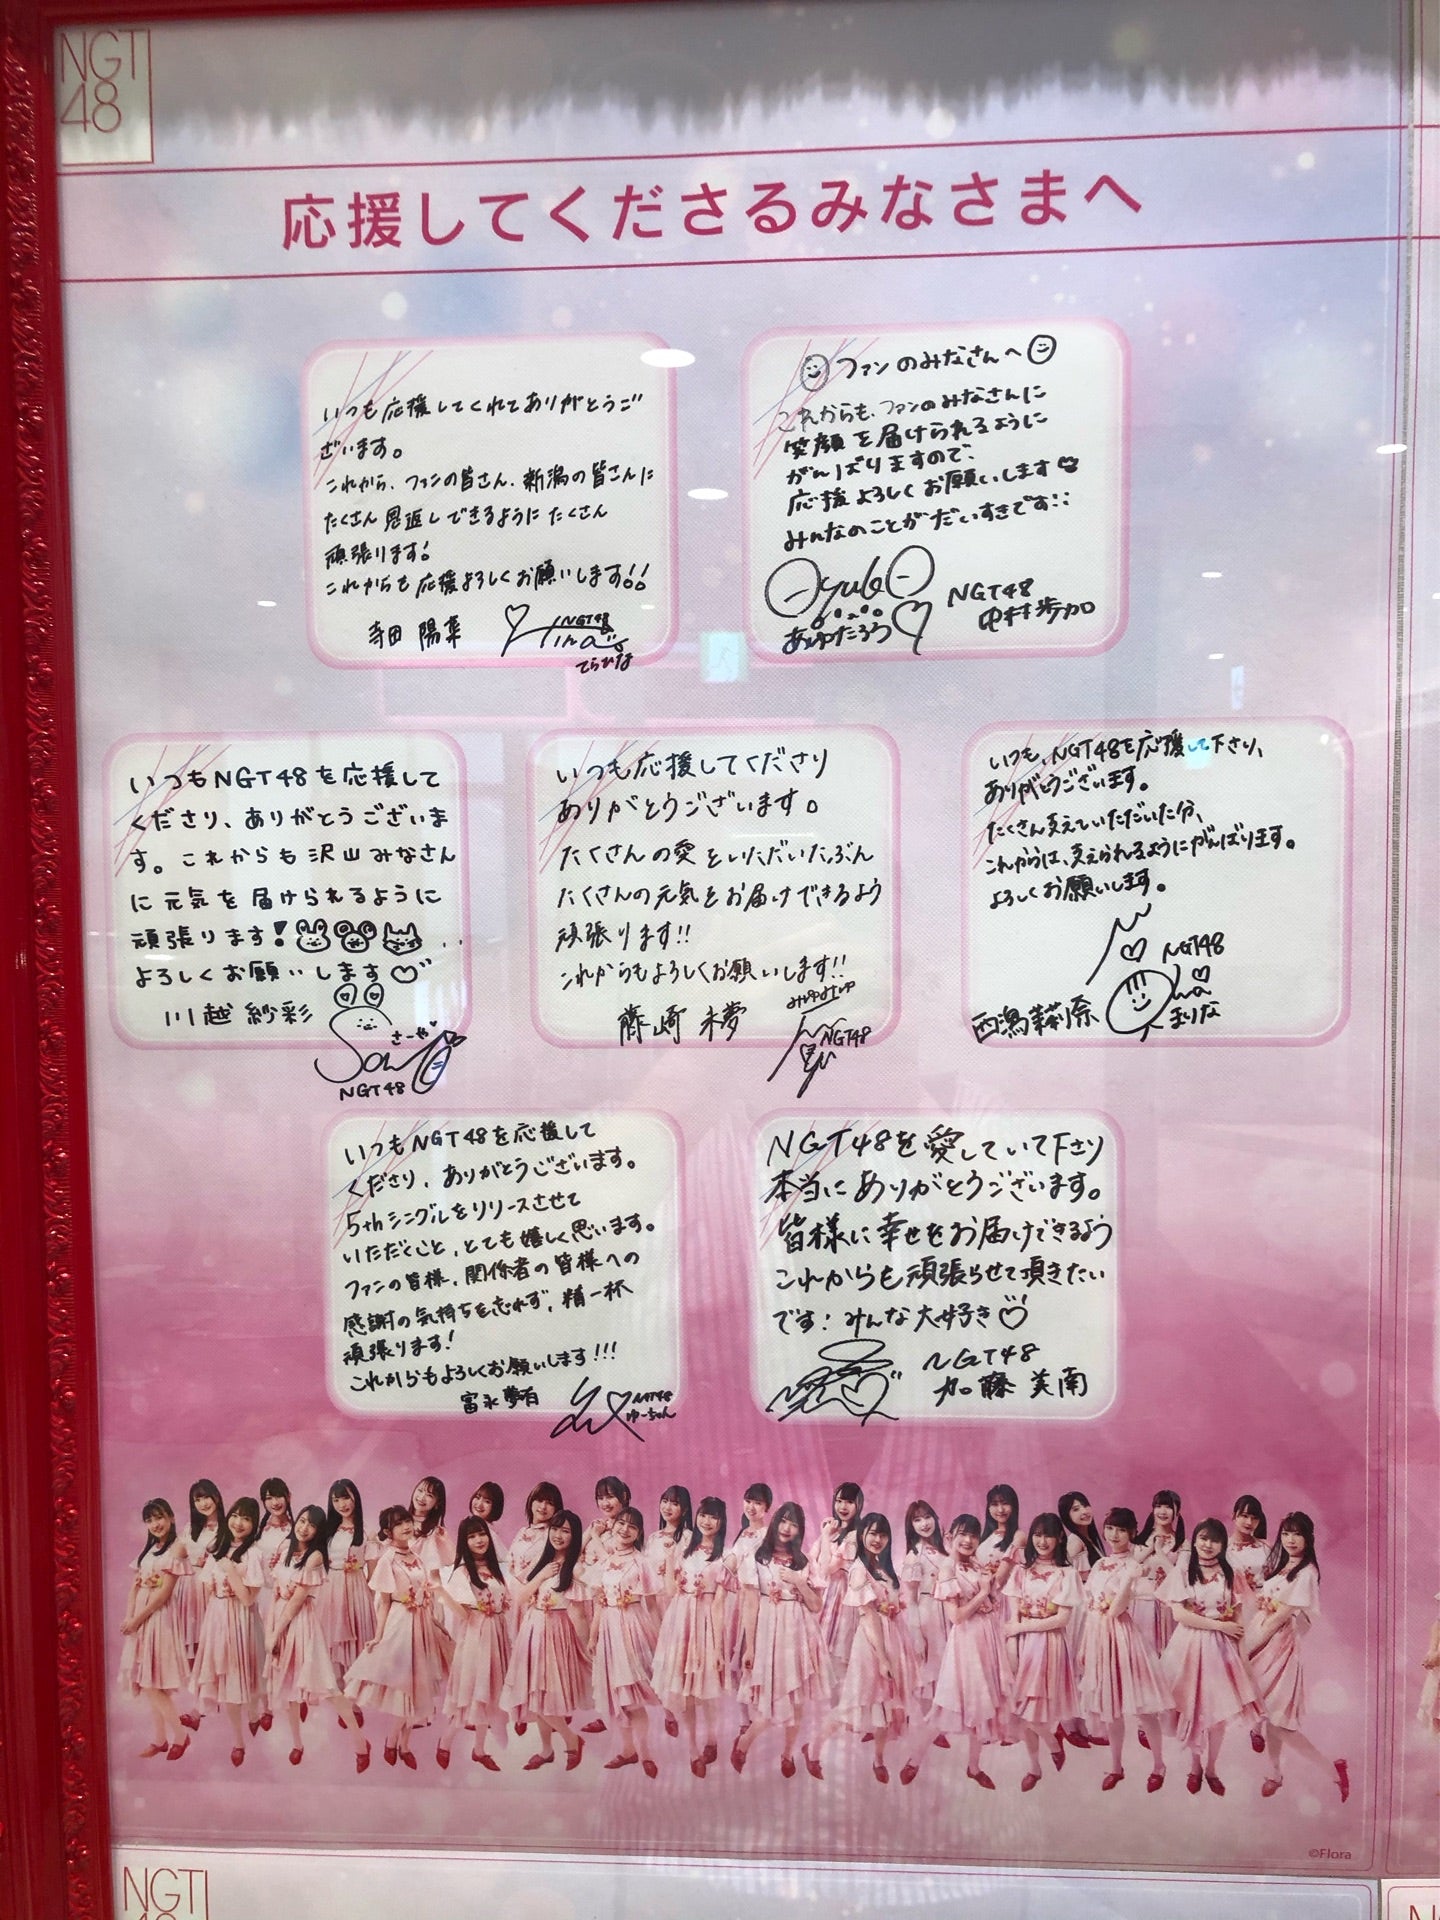 NGT
48
応援してくださるみなさまへ
いつも応援してくれてありがとうご
ざいます。
これから、ファンの皆さん、新潟の皆さんに
たくさん恩返しできるようにたくさん
頑張ります!
これからも応援よろしくお願いします!!
寺田 陽菜
NGT48
Hina
てらひな
ファンのみなさんへ
これからも、ファンのみなさんに
笑顔を届けられるように
がんばりますので、
応援よろしくお願いします
みんなのことがだいすきです
Ayuka
あゆたろう
NGT48
中村歩加
いつもNGT48を応援して
くださり、ありがとうございま
す。これからも沢山みなさん
に元気を届けられるように
頑張ります!
よろしくお願いします♡
川越紗彩
さーや
NGT48
いつも応援してくださり
ありがとうございます。
たくさんの愛をいただいたぶん
たくさんの元気をお届けできるよう
頑張ります!!
これからもよろしくお願いします!!
藤崎 未夢
みゆみゆ
NGT48
いつも、NGT48を応援して下さり、
ありがとうございます。
たくさん支えていただいた分、
これからは、支えられるようにがんばります。
よろしくお願いします。
NGT48
西潟茉莉奈
まりな
いつもNGT48を応援して
くださり、ありがとうございます。
5thシングルをリリースさせて
いただくこと、とても嬉しく思います。
ファンの皆様、関係者の皆様への
感謝の気持ちを忘れず、精一杯
頑張ります!
これからもよろしくお願いします!!!
富永夢有
NGT48
ゆーちゃん
NGT48を愛していて下さり
本当にありがとうございます。
皆様に幸せをお届けできるよう
これからも頑張らせて頂きたい
です! みんな大好き♡
NGT48
加藤 美南
©Flora
NGT